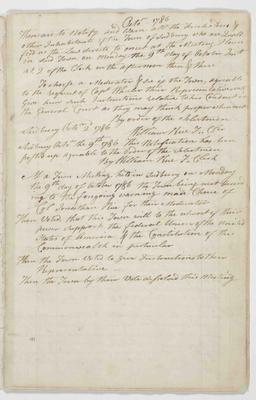 Octr 1786
These are to Notify and Warn all the Freeholders &
other Inhabitants of the Town of Sudbury who are Qualif
ied as the Law directs to meet at the Meeting House
in said Town on Monday the 9th day of October Inst
at 2 of the Clock in the afternoon then & there
To choose a Moderator & see if the Town, agreable
to the request of Capt Wheeler their Representative
Give him such Instructions relative to his Conduct in
the General Court as they may think proper
By order of the Selectmen
Sudbury Octr 2d 1786
William Rice T. Cler
Sudbury Octr the 9th 1786 this Notification has been
posted up agreable to the Order of the Selectmen
By William Rice T. Clerk
At a Town Meeting held in Sudbury on Monday
the 9th day of October 1786 the Town being met
to the foregoing warning made Choice of
Jonathan Rice for their Moderator
Then Voted, that this Town will to the utmost of their
power Support the Federal Union of the United
States of America & the Constitution of this
Commonwealth in particular
Then the Town Voted to Give Instructions to their
Representative
Then the Town by their Vote disolved this Meeting